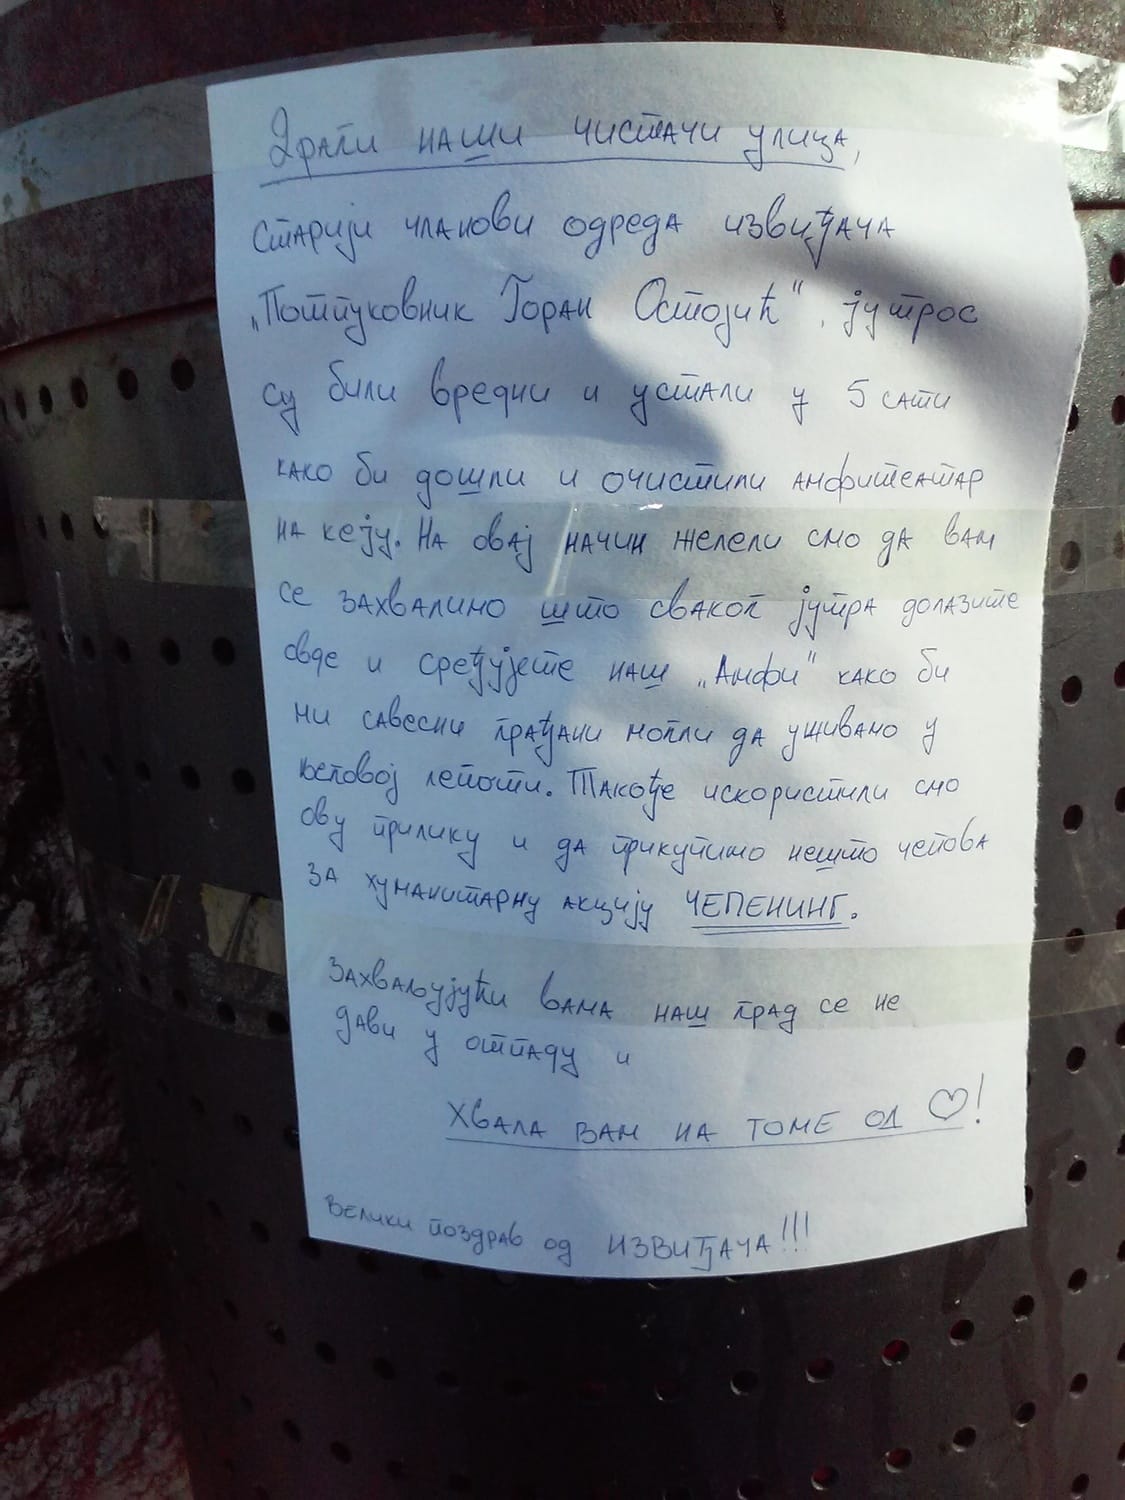 Драги наши чистачи улица,
старији чланови одреда извиђача
„Потпуковник Горан Остојић“, јутрос
су били вредни и устали у 5 сати
како би дошли и очистили амфитеатар
на кеју. На овај начин желели смо да вам
се захвалимо што сваког јутра долазите
овде и сређујете наш „Амфи“ како би
ми савесни грађани могли да уживамо у
његовој лепоти. Такође искористили смо
ову прилику и да прикупимо нешто чепова
за хуманитарну акцију ЧЕПЕНИНГ.
Захваљујући вама наш град се не
дави у отпаду и
ХВАЛА ВАМ НА ТОМЕ ОД ♡!
Велики поздрав од ИЗВИЂАЧА!!!